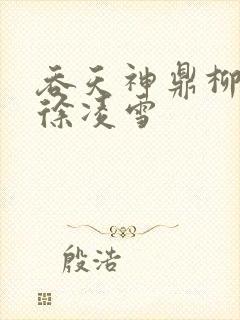 吞天神鼎柳
徐凌雪
殷浩